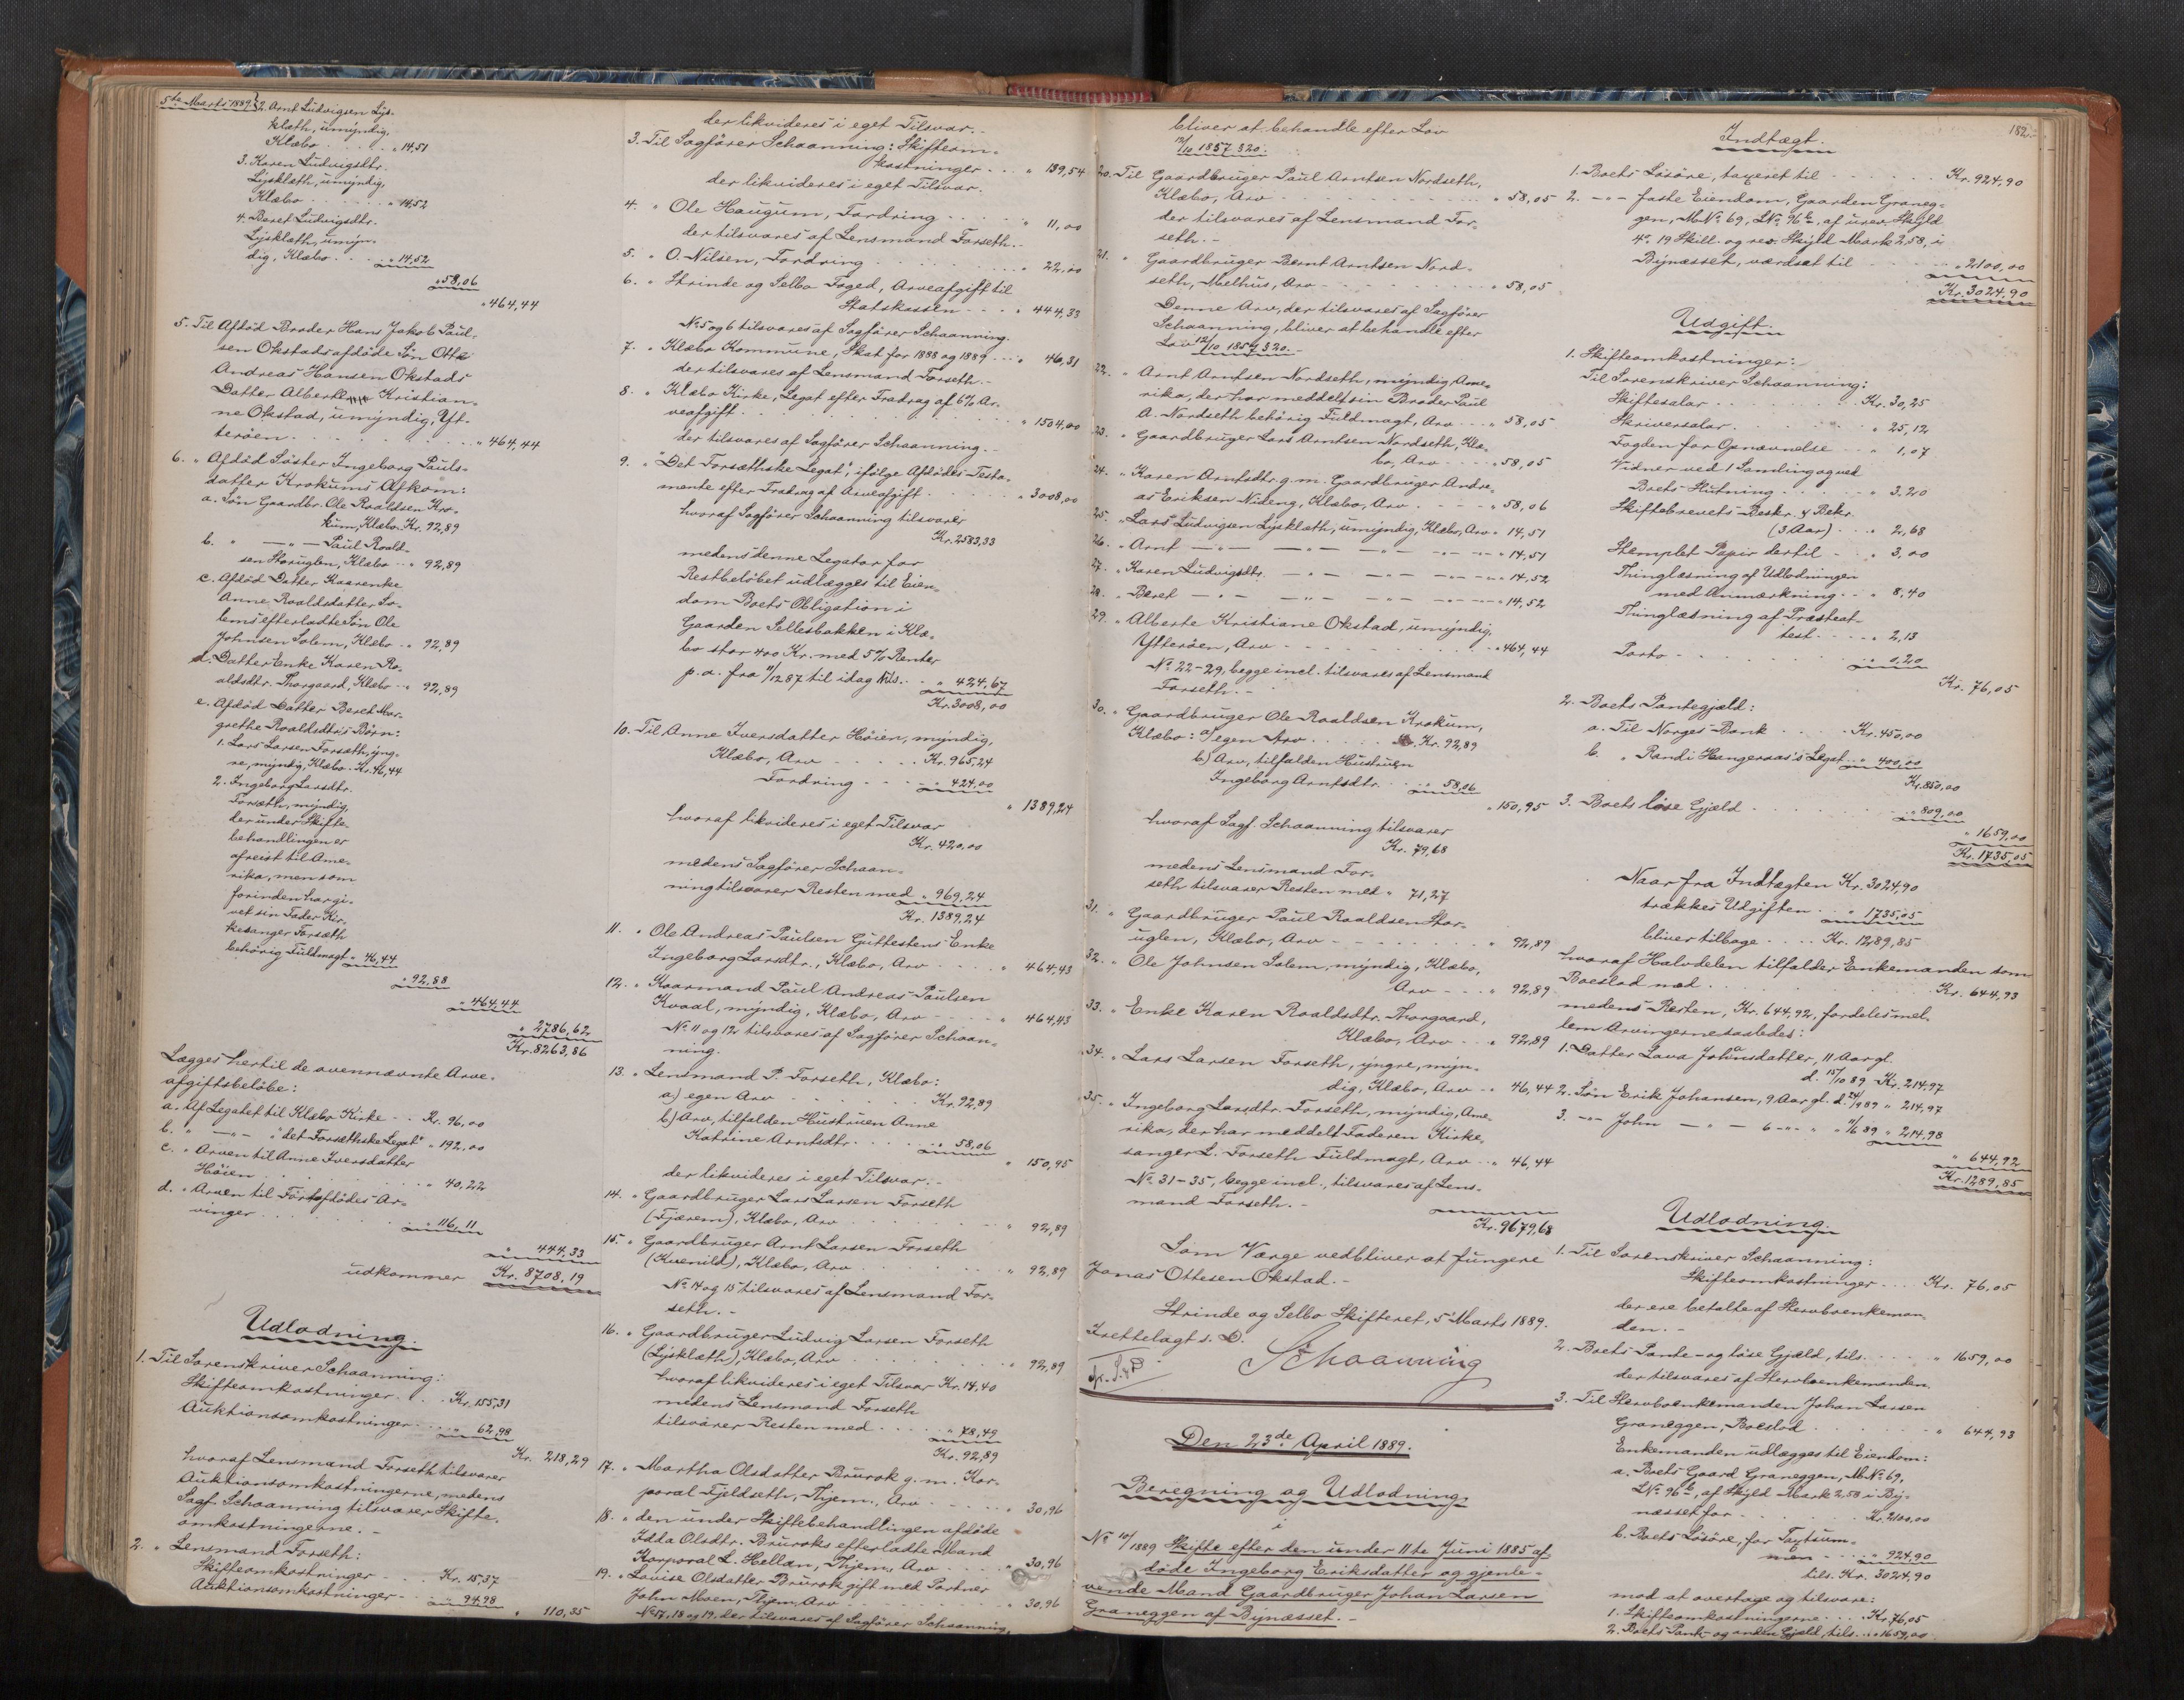 5te Marts 1889. 2. Arnt Ludvigsen Lys-
klæth, umyndig,
Klæbo . . . . „ 14,51
3. Karen Ludvigsdtr.
Lysklæth, umyndig,
Klæbo . . . . „ 14,52
4. Beret Ludvigsdtr.
Lysklæth, umyn-
dig, Klæbo . . . „ 14,52
„ 58,06
„ 464,44
5. Til Afdød Broder Hans Jakob Paul-
sen Okstads afdøde Søn Otto
Andreas Hansen Okstads
Datter Alberte Kristian-
ne Okstad, umyndig, Yt-
terøen . . . . „ 464,44
6. „ Afdød Søster Ingeborg Pauls-
datter Krokums Afkom:
a. Søn Gaardbr. Ole Roaldsen Kro-
kum, Klæbo. Kr. 92,89
b. „ — „ — Paul Roald-
sen Storuglen, Klæbo . . „ 92,89
c. Afdød Datter Kaarenke
Anne Roaldsdatter So-
lems efterladte Søn Ole
Johnsen Solem, Klæbo . . „ 92,89
d. Datter Enke Karen Ro-
aldsdtr. Thorgaard, Klæbo . . „ 92,89
e. Afdød Datter Beret Mar-
grethe Roaldsdtr's Børn:
1. Lars Larsen Forsæth, yng-
re, myndig, Klæbo . Kr. 46,44
2. Ingeborg Larsdtr.
Forsæth, myndig,
der under Skifte-
behandlingen er
afreist til Ame-
rika, men som
forinden har gi-
vet sin Fader Kir-
kesanger Forsæth
behørig Fuldmagt „ 46,44
„ 92,88
„ 464,44
„ 2786,62
Kr. 8263,86
Lægges hertil de ovennævnte Arve-
afgiftsbeløbe:
a. Af Legatet til Klæbo Kirke . . Kr. 96,00
b. „ — „ — „ "det Forsæthske Legat" „ 192,00
c. „ Arven til Anne Iversdatter
Høien . . . . „ 40,22
d. „ Arven til Førstafdødes Ar-
vinger . . . . „ 116,11
„ 444,33
udkommer Kr. 8708,19
Udlodning.
1. Til Sorenskriver Schaanning:
Skifteomkostninger . . Kr. 155,31
Auktionsomkostninger . . „ 62,98
Kr. 218,29
hvoraf Lensmand Forseth tilsvarer
Auktionsomkostningerne, medens
Sagf. Schaanning tilsvarer Skifte-
omkostningerne. —
2. „ Lensmand Forseth:
Skifteomkostninger . . Kr. 15,37
Auktionsomkostninger . . „ 94,98
„ 110,35
der likvideres i eget Tilsvar. —
3. Til Sagfører Schaanning: Skifteom-
kostninger . . . „ 139,54
der likvideres i eget Tilsvar.
4. „ Ole Haugum, Fordring . . . „ 11,00
der tilsvares af Lensmand Forseth. —
5. „ O. Nilsen, Fordring . . . „ 22,00
6. „ Strinde og Selbo Foged, Arveafgift til
Statskassen . . . „ 444,33
No 5 og 6 tilsvares af Sagfører Schaanning.
7. „ Klæbo Kommune, Skat for 1888 og 1889 . . „ 46,31
der tilsvares af Lensmand Forseth. —
8. „ Klæbo Kirke, Legat efter Fradrag af 6% Ar-
veafgift . . . „ 1504,00
der tilsvares af Sagfører Schaanning. —
9. „ "Det Forsæthske Legat", ifølge Afdødes Testa-
mente efter Fradrag af Arveafgift . . „ 3008,00
hvoraf Sagfører Schaanning tilsvarer
Kr. 2583,33
medens denne Legatar for
Restbeløbet udlægges til Eien-
dom Boets Obligation i
Gaarden Sellesbakken i Klæ-
bo stor 400 Kr. med 5% Renter
p. a. fra 11/12 87 til idag tils. . . „ 424,67
Kr. 3008,00
10. Til Anne Iversdatter Høien, myndig,
Klæbo, Arv . . . Kr. 965,24
Fordring . . . „ 424,00
„ 1389,24
hvoraf likvideres i eget Tilsvar
Kr. 420,00
medens Sagfører Schaan-
ning tilsvarer Resten med „ 969,24
Kr. 1389,24
11. „ Ole Andreas Paulsen Guttestens Enke
Ingeborg Larsdtr., Klæbo, Arv . . . „ 464,43
12. „ Kaarmand Paul Andreas Paulsen
Kvaal, myndig, Klæbo, Arv . . . „ 464,43
No 11 og 12 tilsvares af Sagfører Schaan-
ning.
13. „ Lensmand P. Forseth, Klæbo:
a) egen Arv . . . Kr. 92,89
b) Arv, tilfalden Hustruen Anne
Katrine Arntsdtr. . . . „ 58,06
„ 150,95
der likvideres i eget Tilsvar. —
14. „ Gaardbruger Lars Larsen Forseth
(Fjærem), Klæbo, Arv . . . „ 92,89
15. „ Gaardbruger Arnt Larsen Forseth
(Kuenild), Klæbo, Arv . . . „ 92,89
No 14 og 15 tilsvares af Lensmand For-
seth. —
16. „ Gaardbruger Ludvig Larsen Forseth
(Lysklæth), Klæbo, Arv . . . „ 92,89
hvoraf likvideres i eget Tilsvar Kr. 14,40
medens Lensmand Forseth
tilsvarer Resten med . . . „ 78,49
Kr. 92,89
17. „ Martha Olsdatter Brurok g. m. Kor-
poral Fjeldseth, Thjem, Arv . . . „ 30,96
18. „ den under Skiftebehandlingen afdøde
Idda Olsdtr. Bruroks efterladte Mand
Korporal L. Hellan, Thjem, Arv . . . „ 30,96
19. „ Lovise Olsdatter Brurok gift med Partner
John Moen, Thjem, Arv . . . „ 30,96
No 17, 18 og 19, der tilsvares af Sagfører Schaanning,
bliver at behandle efter Lov
12/10 1857 § 20.
20. Til Gaardbruger Paul Arntsen Nordseth,
Klæbo, Arv . . . „ 58,05
der tilsvares af Lensmand For-
seth. —
21. „ Gaardbruger Bernt Arntsen Nord-
seth, Melhus, Arv . . . „ 58,05
Denne Arv, der tilsvares af Sagfører
Schaanning, bliver at behandle efter
Lov 12/10 1857 § 20. —
22. „ Arnt Arntsen Nordseth, myndig, Ame-
rika, der har meddelt sin Broder Paul
A. Nordseth behørig Fuldmagt, Arv . . „ 58,05
23. „ Gaardbruger Lars Arntsen Nordseth, Klæ-
bo, Arv . . . „ 58,05
24. „ Karen Arntsdtr. g. m. Gaardbruger Andre-
as Eriksen Nideng, Klæbo, Arv . . . „ 58,06
25. „ Lars Ludvigsen Lysklæth, umyndig, Klæbo, Arv „ 14,51
26. „ Arnt — „ — — „ — — „ — — „ — „ 14,51
27. „ Karen Ludvigsdtr. — „ — — „ — — „ — „ 14,52
28. „ Beret — „ — — „ — — „ — — „ — „ 14,52
29. „ Alberte Kristiane Okstad, umyndig,
Ytterøen, Arv . . . „ 464,44
No 22-29, begge incl. tilsvares af Lensmand
Forseth. —
30. „ Gaardbruger Ole Roaldsen Krokum,
Klæbo: a) egen Arv . . . Kr. 92,89
b) Arv, tilfalden Hustruen
Ingeborg Arntsdtr. . . „ 58,06
„ 150,95
hvoraf Sagf. Schaanning tilsvarer
Kr. 79,68
medens Lensmand For-
seth tilsvarer Resten med „ 71,27
31. „ Gaardbruger Paul Roaldsen Stor-
uglen, Klæbo, Arv . . . „ 92,89
32. „ Ole Johnsen Solem, myndig, Klæbo,
Arv . . . „ 92,89
33. „ Enke Karen Roaldsdtr. Thorgaard,
Klæbo, Arv . . . „ 92,89
34. „ Lars Larsen Forseth, yngre, myn-
dig, Klæbo, Arv . . „ 46,44
35. „ Ingeborg Larsdtr. Forseth, myndig, Ame-
rika, der har meddelt Faderen Kirke-
sanger L. Forseth Fuldmagt, Arv . . „ 46,44
No 31-35, begge incl., tilsvares af Lens-
mand Forseth. —
Kr. 9679,68
Som Værge vedbliver at fungere
Jonas Ottesen Okstad. —
Strinde og Selbo Skifteret, 5 Marts 1889.
Irettelagt s. D.
Schaanning
Den 23de April 1889.
Beregning og Udlodning
i
No 10/1889 Skifte efter den under 11te Juni 1885 af-
døde Ingeborg Eriksdatter og gjenle-
vende Mand Gaardbruger Johan Larsen
Graneggen af Bynæsset. —
182.
Indtægt.
1. Boets Løsøre, taxeret til . . . Kr. 924,90
2. — „ — faste Eiendom, Gaarden Graneg-
gen, M.No 69, LNo 96b, af urev. Skyld
4 o. 19 Skill. og rev. Skyld Mark 2,58, i
Bynæsset, værdsat til . . . „ 2100,00
Kr. 3024,90
Udgift.
1. Skifteomkostninger:
Til Sorenskriver Schaanning:
Skiftesalar . . . Kr. 30,25
Skriversalar . . . „ 25,12
Fogden for Opnævnelse . . „ 1,07
Vidner ved 1 Samling og ved
Boets Slutning . . . „ 3,20
Skiftebrevets Beskr. & Bekr.
(3 Aar) . . . „ 2,68
Stemplet Papir dertil . . „ 3,00
Thinglæsning af Udlodningen
med Anmærkning . . „ 8,40
Thinglæsning af Præsteat-
test . . . „ 2,13
Porto . . . „ 0,20
Kr. 76,05
2. Boets Pantegjæld:
a. Til Norges Bank . . . Kr. 450,00
b. „ Randi Hangeraas's Legat . . „ 400,00
Kr. 850,00
3. Boets løse Gjæld . . . „ 809,00
„ 1659,00
Kr. 1735,05
Naar fra Indtægten Kr. 3024,90
trækkes Udgiften . . „ 1735,05
bliver tilbage . . . Kr. 1289,85
hvoraf Halvdelen tilfalder Enkemanden som
Boeslod med . . . Kr. 644,93
medens Resten, Kr. 644,92, fordeles mel-
lem Arvingerne saaledes:
1. Datter Lava Johansdatter, 11 Aar gl.
d. 15/10 89 - Kr. 214,97
2. Søn Erik Johansen, 9 Aar gl. d. 24/9 89 „ 214,97
3. — „ — John — „ — 6 — „ — „ 11/6 89 „ 214,98
„ 644,92
Kr. 1289,85
Udlodning.
1. Til Sorenskriver Schaanning:
Skifteomkostninger . . . Kr. 76,05
der ere betalte af Stervboenkeman-
den. —
2. Boets Pante- og løse Gjæld, tils. . . „ 1659,00
der tilsvares af Stervboenkemanden.
3. Til Stervboenkemanden Johan Larsen
Graneggen, Boeslod . . . „ 644,93
Enkemanden udlægges til Eiendom:
a. Boets Gaard Graneggen, M.No 69,
LNo 96b, af Skyld Mark 2,58 i By-
næsset for . . . Kr. 2100,00
b. Boets Løsøre, for Taxtsum-
men . . . „ 924,90
tils. Kr. 3024,90
mod at overtage og tilsvare:
1. Skifteomkostningerne . . . Kr. 76,05
2. Boets Pante- og anden Gjæld, tils. . . „ 1659,00